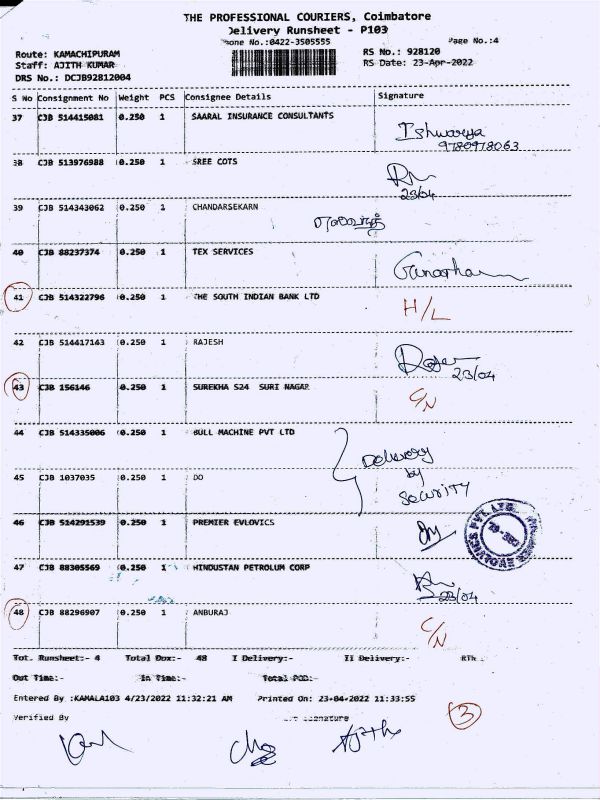 THE PROFESSIONAL COURIERS, Coimbatore
Delivery Runsheet - P103
Phone No.:0422-3505555
Page No.:4
Route: KAMACHIPURAM
RS No.: 928120
Staff: AJITH KUMAR
RS Date: 23-Apr-2022
DRS No.: DCJB92812004
S No Consignment No Weight PCS Consignee Details Signature
37 CJB 514415081 0.250 1 SAARAL INSURANCE CONSULTANTS
Ishwarya
9780978063
38 CJB 513976988 0.250 1 SREE COTS
23/04
39 CJB 514343062 0.250 1 CHANDARSEKARN
40 CJB 88237374 0.250 1 TEX SERVICES
41 CJB 514322796 0.250 1 THE SOUTH INDIAN BANK LTD H/L
42 CJB 514417143 0.250 1 RAJESH
23/04
43 CJB 156146 0.250 1 SUREKHA S24 SURI NAGAR C/N
44 CJB 514335006 0.250 1 BULL MACHINE PVT LTD
Delivery
by
Security
45 CJB 1037035 0.250 1 DO
46 CJB 514291539 0.250 1 PREMIER EVLOVICS
47 CJB 88305569 0.250 1 HINDUSTAN PETROLUM CORP
23/04
48 CJB 88296907 0.250 1 ANBURAJ C/N
Tot. Runsheet:- 4 Total Dox:- 48 I Delivery:- II Delivery:-
Out Time:- In Time:- Total POD:-
Entered By :KAMALA103 4/23/2022 11:32:21 AM Printed On: 23-04-2022 11:33:55
Verified By Signature
3
Ajith